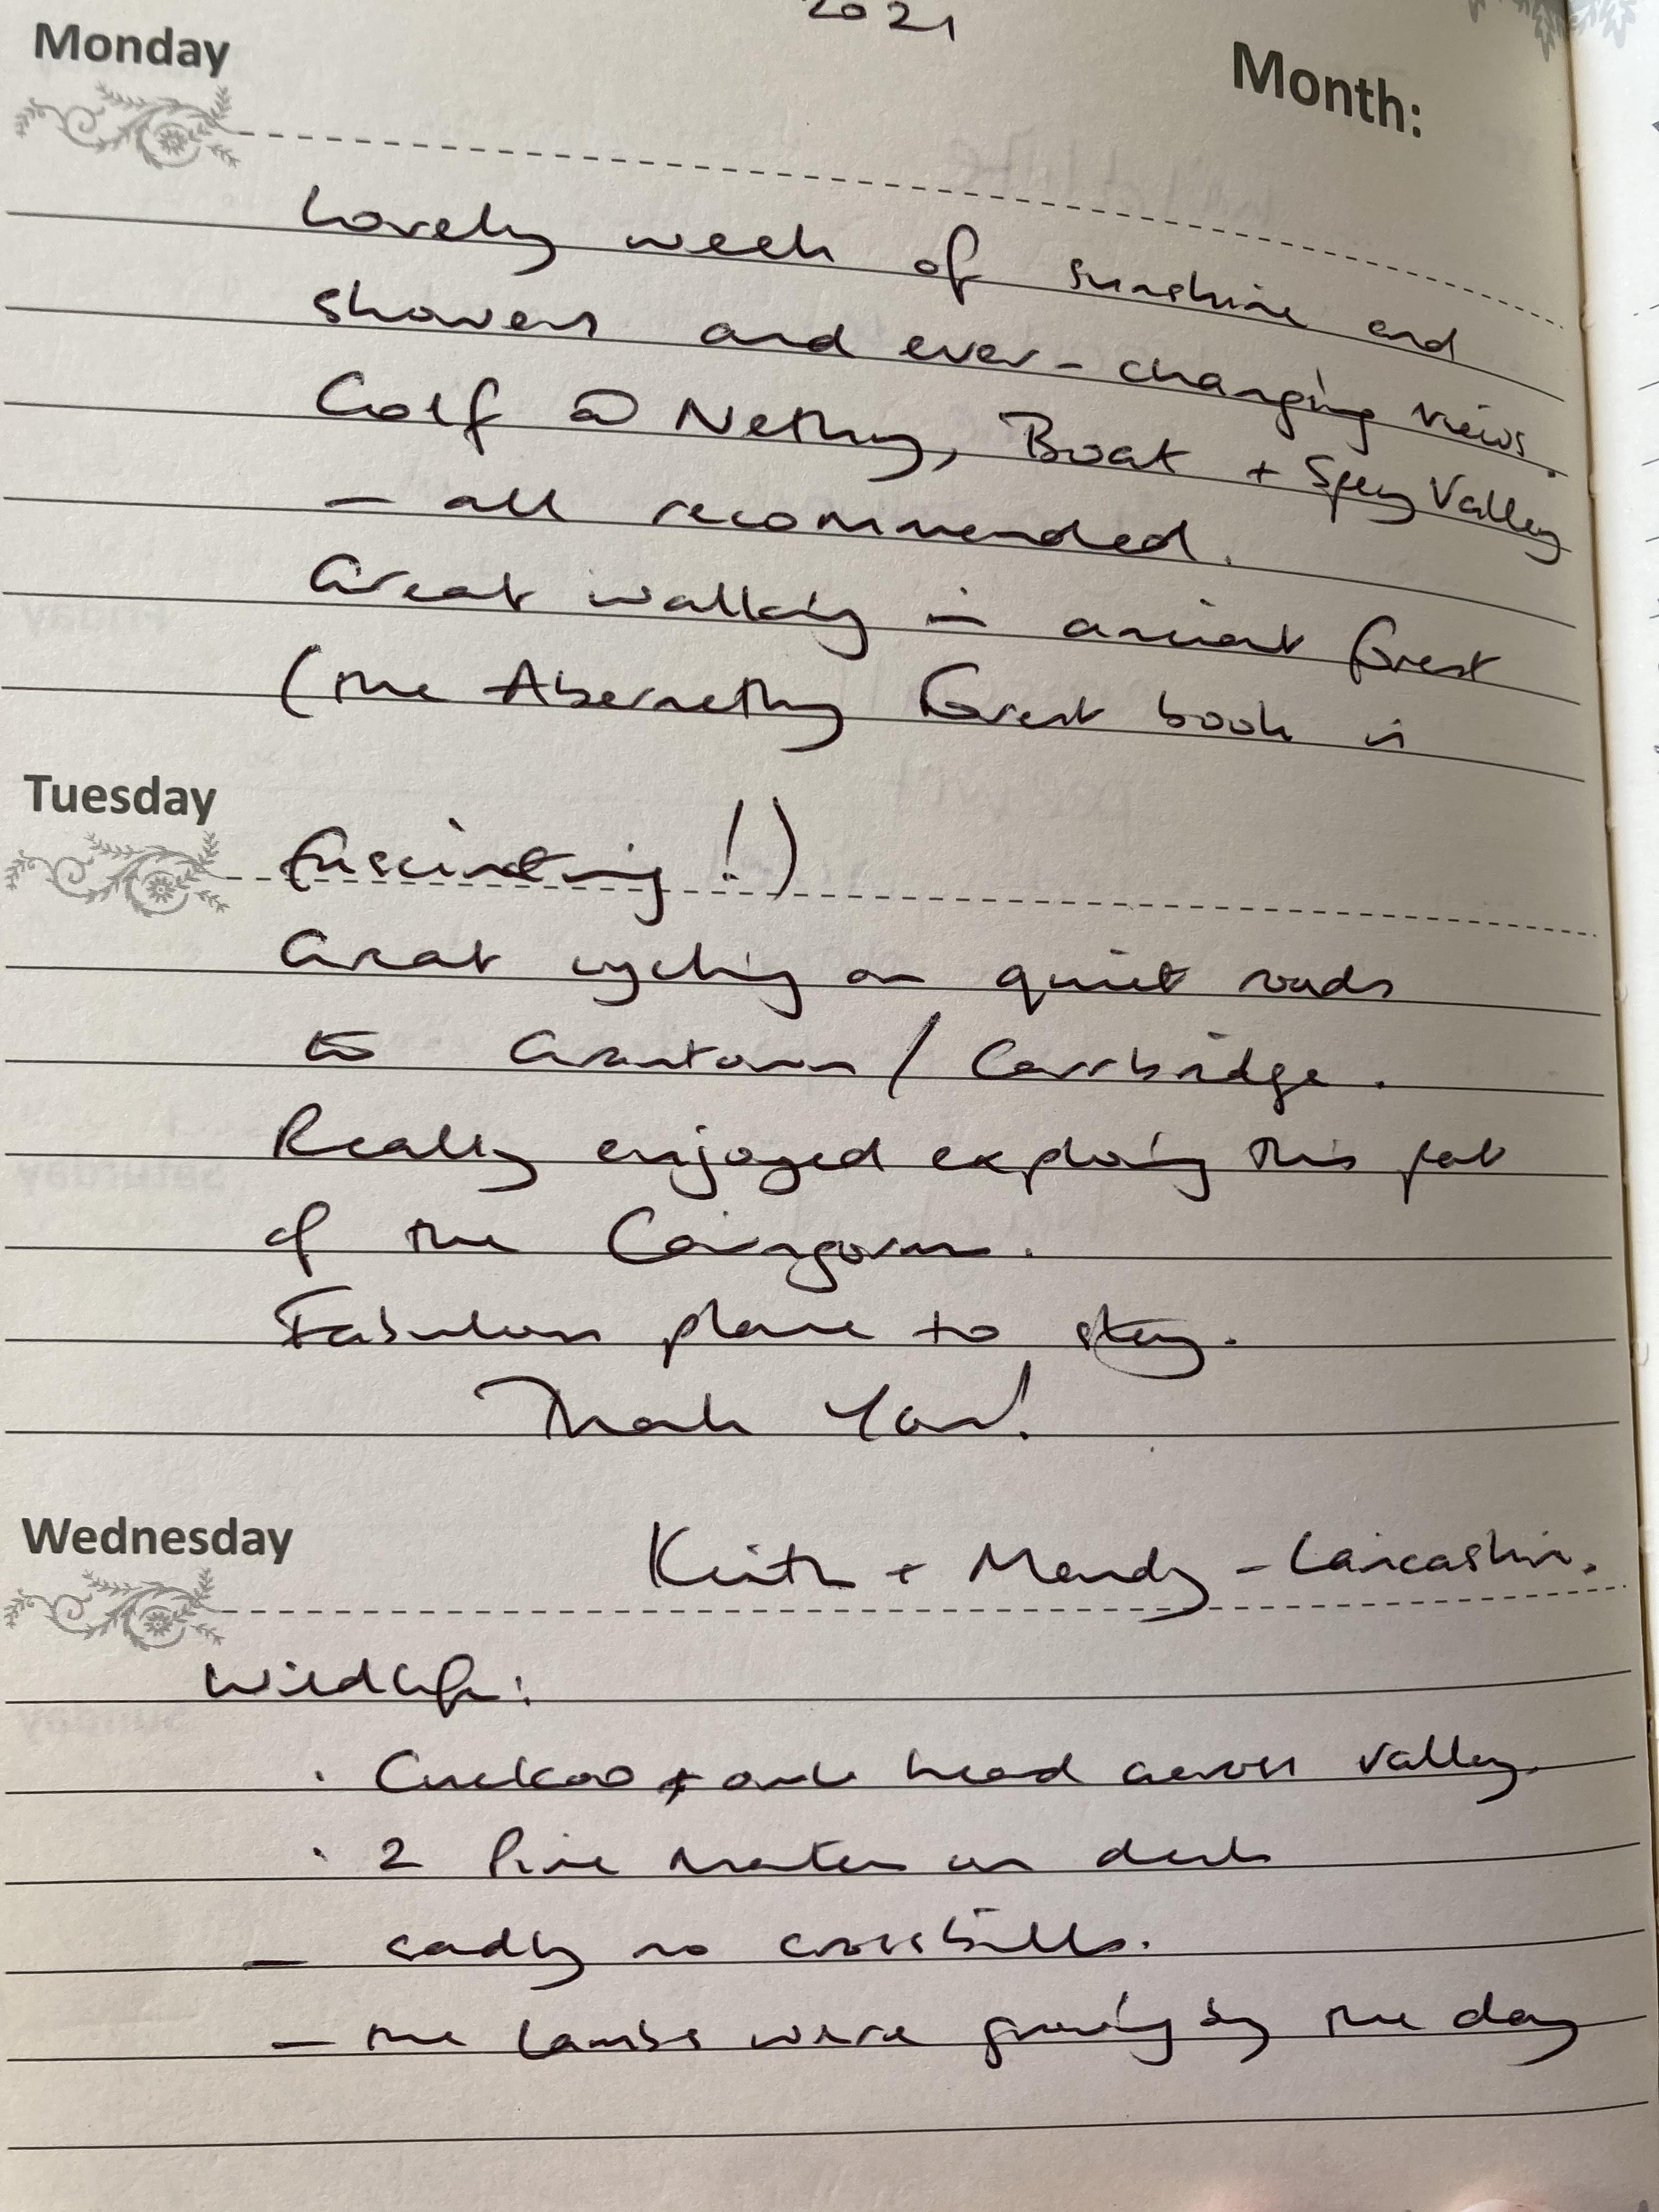 2021
Monday
Month:
Lovely week of sunshine and
showers and ever-changing views.
Golf @ Nethy, Boat + Spey Valley
- all recommended.
Great walking in ancient forest
(the Abernethy Forest book is
Tuesday
fascinating!)
Great cycling on quiet roads
to Grantown / Carrbridge.
Really enjoyed exploring this part
of the Cairngorms.
Fabulous place to stay.
Thank You!
Wednesday
Keith + Mandy - Lancashire.
Wildlife:
· Cuckoo + owls heard across valley.
· 2 Pine Martens on deck
- sadly no crossbills.
- the lambs were growing by the day